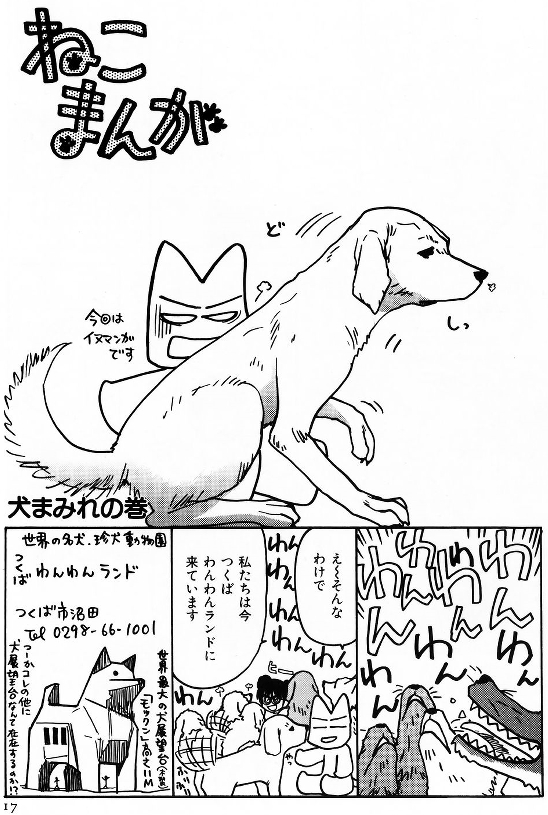 ねこ
まんが
ど
今回は
イヌマンガ
です
しっ
犬まみれの巻
わん
わん
わん
わん
わん
わん
わん
えーそんな
わけで
私たちは今
つくば
わんわんランドに
来ています
わん
わん
わん
わん
わん
世界の名犬・珍犬動物園
つくば わんわんランド
つくば市沼田
Tel 0298-66-1001
世界最大の犬展望台(木製)
「モックン」高さ11M
つーかコレの他に
犬展望台なんて存在するのか!?
17